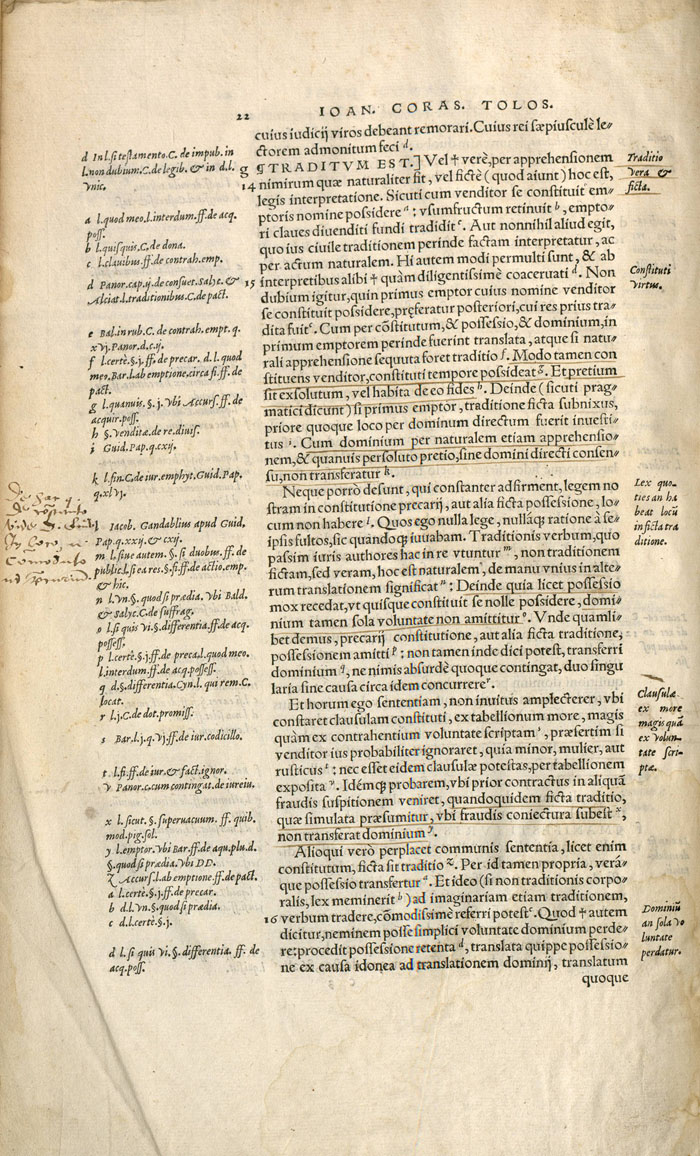 22
IOAN. CORAS. TOLOS.
cuius iudicij viros debeant remorari. Cuius rei sæpiusculè le-
ctorem admonitum feci d.
g ¶TRADITVM EST.] Vel † verè, per apprehensionem
14 nimirum quæ naturaliter sit, vel fictè (quod aiunt) hoc est,
legis interpretatione. Sicuti cum venditor se constituit em-
ptoris nomine possidere a: vsumfructum retinuit b, empto-
ri claues diuenditi fundi tradidit c. Aut nonnihil aliud egit,
quo ius ciuile traditionem perinde factam interpretatur, ac
per actum naturalem. Hi autem modi permulti sunt, & ab
15 interpretibus alibi † quàm diligentissimè coaceruati d. Non
dubium igitur, quin primus emptor cuius nomine venditor
se constituit possidere, pręferatur posteriori, cui res prius tra-
dita fuit e. Cum per cõstitutum, & possessio, & dominium, in
primum emptorem perinde fuerint translata, atque si natu-
rali apprehensione sequuta foret traditio f. Modo tamen con
stituens venditor, constituti tempore possideat g. Et pretium
sit exsolutum, vel habita de eo fides h. Deinde (sicuti prag-
matici dicunt) si primus emptor, traditione ficta subnixus,
priore quoque loco per dominum directum fuerit inuesti-
tus i. Cum dominium per naturalem etiam apprehensio-
nem, & quanuis persoluto pretio, sine domini directi consen-
su, non transferatur k.
Neque porrò desunt, qui constanter adfirment, legem no
stram in constitutione precarij, aut alia ficta possessione, lo-
cum non habere l. Quos ego nulla lege, nullâq; ratione à se-
ipsis fultos, sic quandoq; iuuabam. Traditionis verbum, quo
passim iuris authores hac in re vtuntur m, non traditionem
fictam, sed veram, hoc est naturalem, de manu vnius in alte-
rum translationem significat n: Deinde quia licet possessio
mox recedat, vt quisque constituit se nolle possidere, domi-
nium tamen sola voluntate non amittitur o. Vnde quamli-
bet demus, precarij constitutione, aut alia ficta traditione,
possessionem amitti p: non tamen inde dici potest, transferri
dominium q, ne nimis absurdè quoque contingat, duo singu
laria sine causa circa idem concurrere r.
Et horum ego sententiam, non inuitus amplecterer, vbi
constaret clausulam constituti, ex tabellionum more, magis
quàm ex contrahentium voluntate scriptam s, præsertim si
venditor ius probabiliter ignoraret, quia minor, mulier, aut
rusticus t: nec esset eidem clausulæ potestas, per tabellionem
exposita v. Idémq; probarem, vbi prior contractus in aliquã
fraudis suspitionem veniret, quandoquidem ficta traditio,
quæ simulata præsumitur, vbi fraudis coniectura subest x,
non transferat dominium y.
Alioqui verò perplacet communis sententia, licet enim
constitutum, ficta sit traditio z. Per id tamen propria, verá-
que possessio transfertur a. Et ideo (si non traditionis corpo-
ralis, lex meminerit b) ad imaginariam etiam traditionem,
16 verbum tradere, cõmodissimè referri potest c. Quod † autem
dicitur, neminem posse simplici voluntate dominium perde-
re: procedit possessione retenta d, translata quippe possessio-
ne ex causa idonea ad translationem dominij, translatum
quoque
d In l. si testamento. C. de impub. in
l. non dubium. C. de legib. & in d. l.
vnic.
a l. quod meo. l. interdum. ff. de acq.
poss.
b l. quisquis. C. de dona.
c l. clauibus. ff. de contrah. emp.
d Panor. cap. ij. de consuet. Salyc. &
Alciat. l. traditionibus. C. de pact.
e Bal. in rub. C. de contrah. empt. q.
xvj. Panor. d. c. ij.
f l. certè. §. j. ff. de precar. d. l. quod
meo. Bar. l. ab emptione. circa fi. ff. de
pact.
g l. quanuis. §. j. vbi Accurs. ff. de
acquir. poss.
h §. venditæ. de re. diuis.
i Guid. Pap. q. cxij.
k l. fin. C. de iur. emphyt. Guid. Pap.
q. xlvj.
l Iacob. Gandablius apud Guid.
Pap. q. xxij. & cxij.
m l. siue autem. §. si duobus. ff. de
public. l. si ea res. §. si. ff. de actio. emp.
& hic.
n l. vn. §. quod si prædia. vbi Bald.
& Salyc. C. de suffrag.
o l. si quis vi. §. differentia. ff. de acq.
possess.
p l. certè. §. j. ff. de preca. l. quod meo.
l. interdum. ff. de acq. possess.
q d. §. differentia. Cyn. l. qui rem. C.
locat.
r l. j. C. de dot. promiss.
s Bar. l. j. q. vj. ff. de iur. codicillo.
t l. fi. ff. de iur. & fact. ignor.
v Panor. c. cum contingat. de iureiu.
x l. sicut. §. superuacuum. ff. quib.
mod. pig. sol.
y l. emptor. vbi Bar. ff. de aqu. plu. d.
§. quod si prædia. vbi DD.
z Accurs. l. ab emptione. ff. de pact.
a l. certè. §. j. ff. de precar.
b d. l. vn. §. quod si prædia.
c d. l. certè. §. j.
d l. si quis vi. §. differentia. ff. de
acq. poss.
Traditio
vera &
ficta.
Constituti
virtus.
Lex quo-
ties an ha
beat locũ
in ficta tra
ditione.
Clausulæ
ex more
magis quã
ex volun-
tate scri-
ptæ.
Dominiũ
an sola vo
luntate
perdatur.